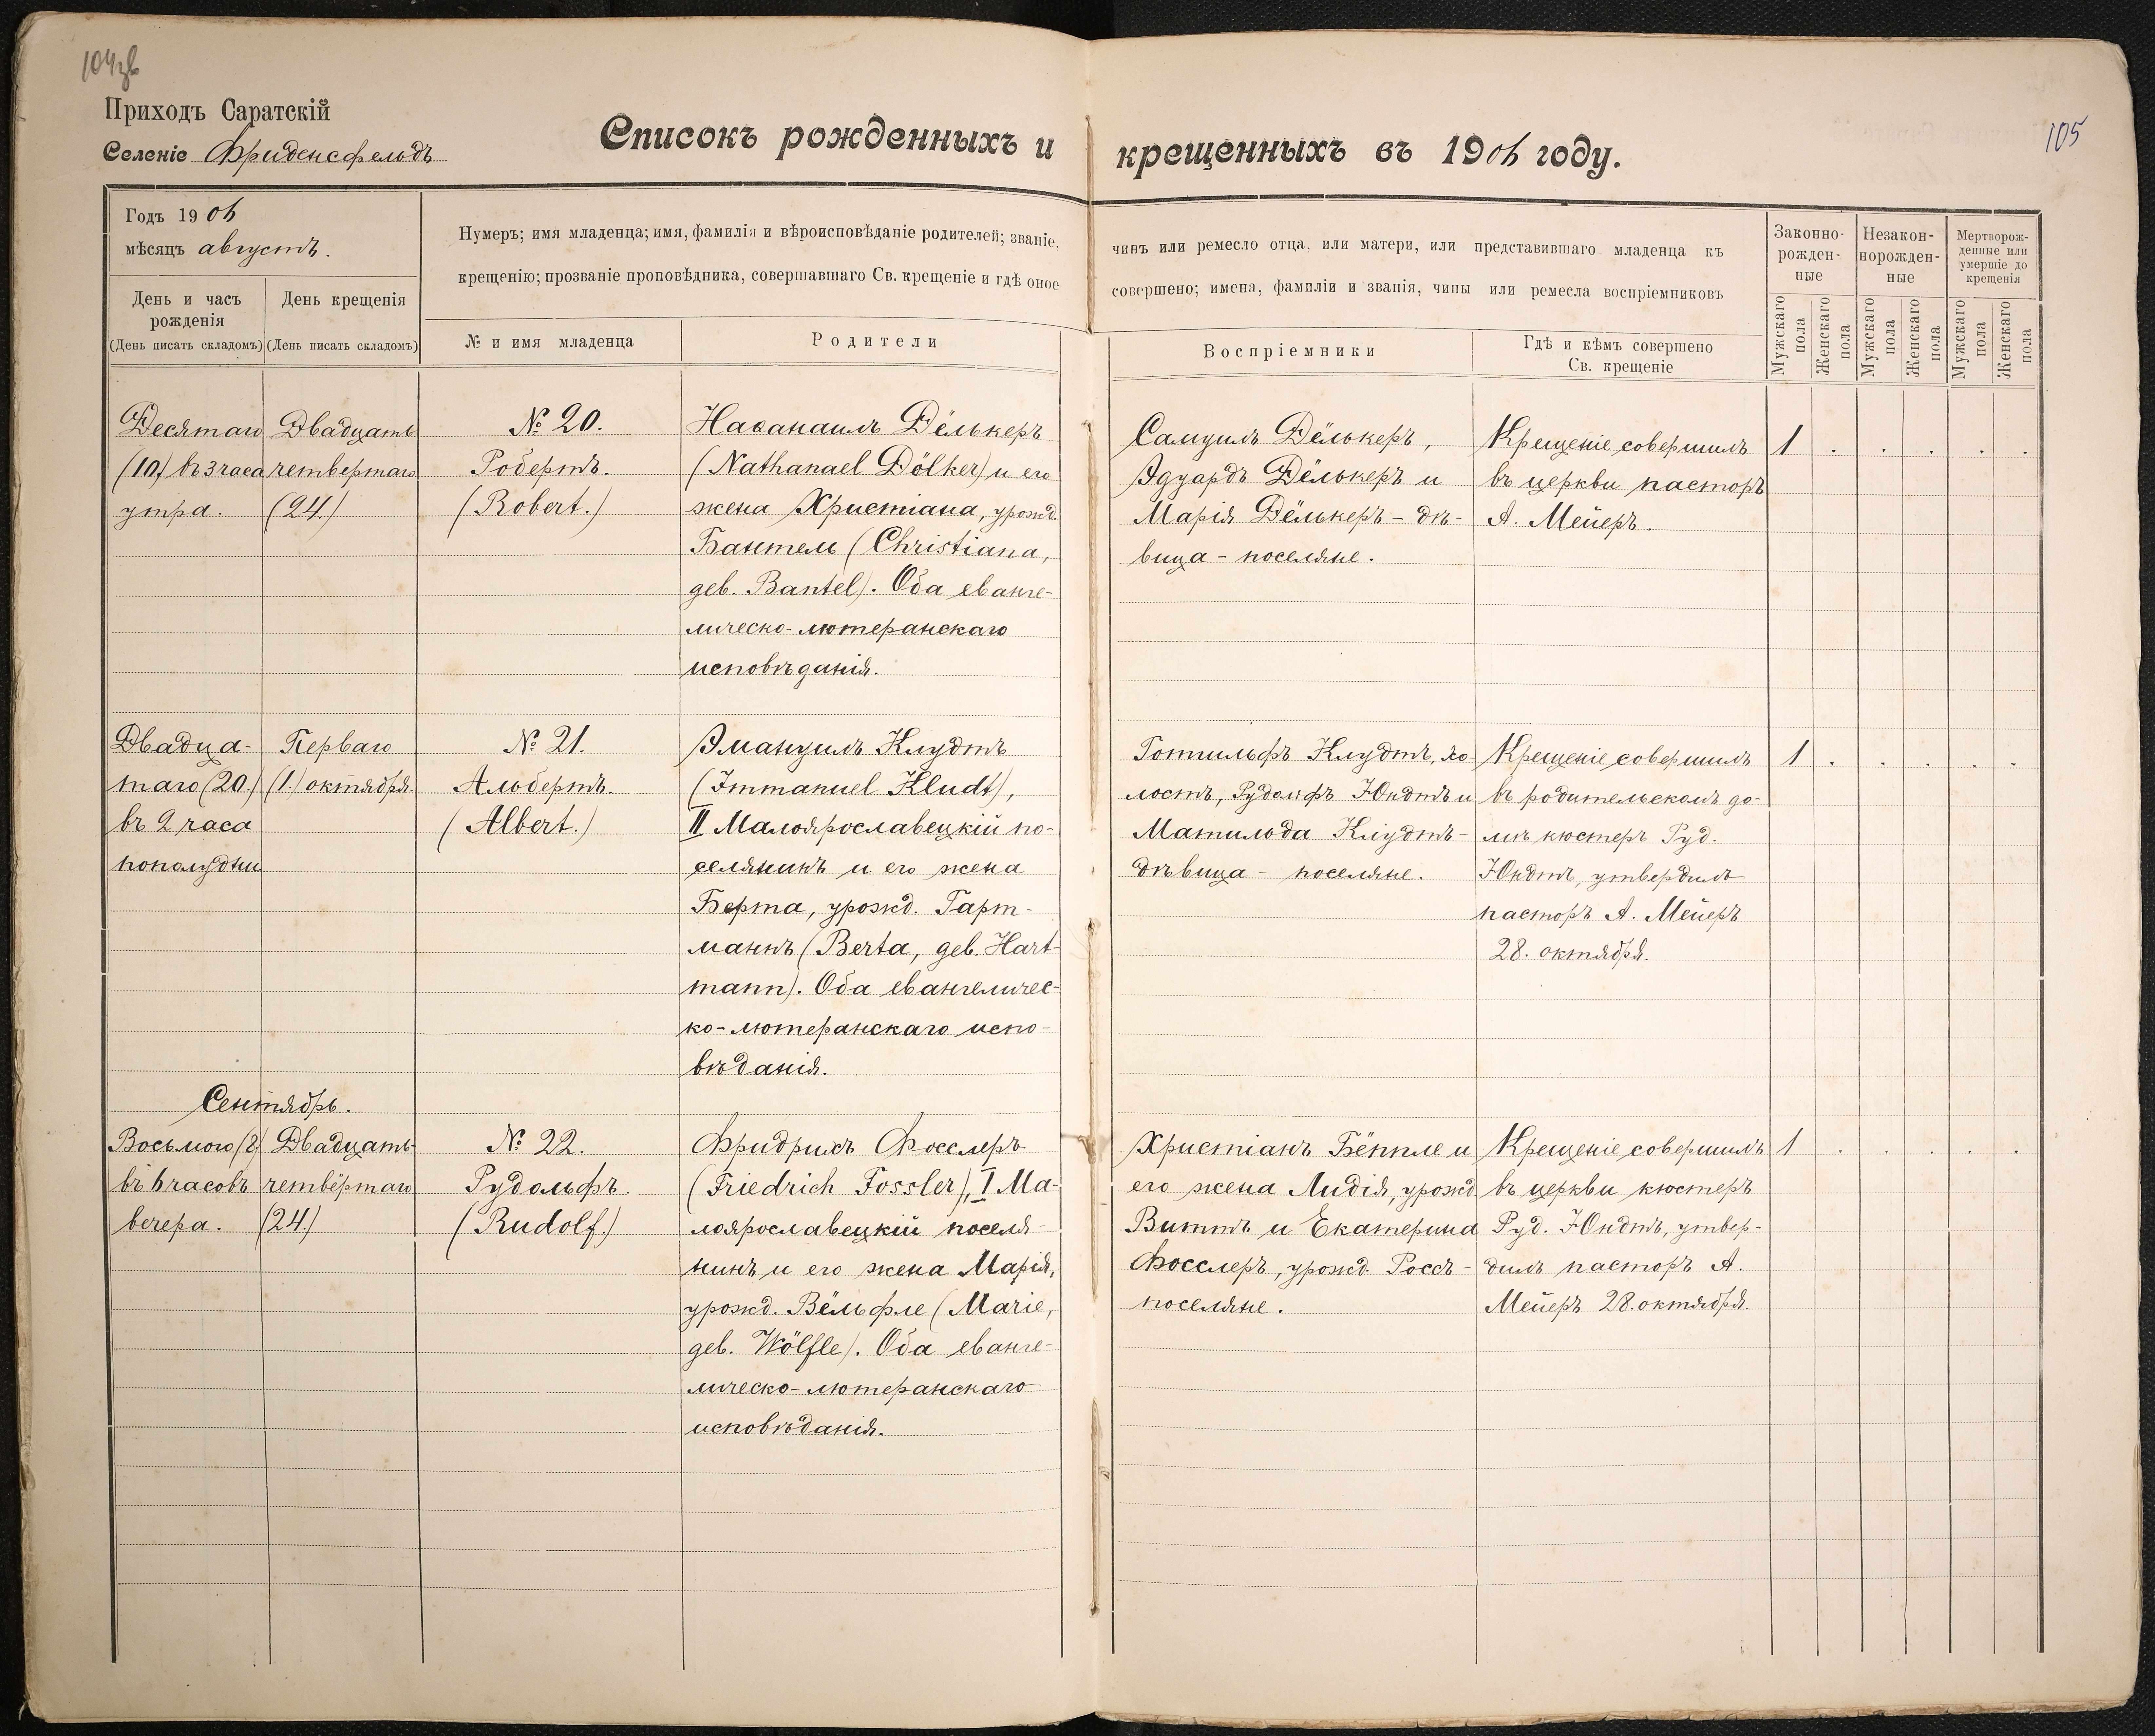 104
105
Приходъ Саратскій
Селеніе Фриденсфельдъ
Списокъ рожденныхъ и крещенныхъ въ 1906 году.
Годъ 1906
мѣсяцъ августъ.
День и часъ рожденія
(День писать складомъ)
День крещенія
(День писать складомъ)
Нумеръ; имя младенца; имя, фамилія и вѣроисповѣданіе родителей; званіе, чинъ или ремесло отца, или матери, или представившаго младенца къ
крещенію; прозваніе проповѣдника, совершавшаго Св. крещеніе и гдѣ оное совершено; имена, фамиліи и званія, чины или ремесла воспріемниковъ
№ и имя младенца
Родители
Воспріемники
Гдѣ и кѣмъ совершено
Св. крещеніе
Законно-
рожден-
ные
Незакон-
норожден-
ные
Мертворож-
денные или
умершіе до
крещенія
Мужскаго пола
Женскаго пола
Мужскаго пола
Женскаго пола
Мужскаго пола
Женскаго пола
Десятаго
(10.) въ 3 часа
утра.
Двадцать
четвертаго
(24.)
№ 20.
Робертъ.
(Robert.)
Наѳанаилъ Дёлькеръ
(Nathanael Dölker) и его
жена Христіана, урожд.
Бантель (Christiana,
geb. Bantel). Оба еванге-
лическо-лютеранскаго
исповѣданія.
Самуилъ Дёлькеръ,
Эдуардъ Дёлькеръ и
Марія Дёлькеръ - дѣ-
вица - поселяне.
Крещеніе совершилъ
въ церкви пасторъ
А. Мейеръ.
1 . . . . .
Двадца-
таго (20.)
въ 2 часа
пополудни
Перваго
(1.) октября.
№ 21.
Альбертъ.
(Albert.)
Эмануилъ Клудтъ
(Immanuel Kludt),
II Малоярославецкій по-
селянинъ и его жена
Берта, урожд. Гарт-
маннъ (Berta, geb. Hart-
mann). Оба евангеличес-
ко-лютеранскаго испо-
вѣданія.
Готтильфъ Клудтъ, хо-
лостъ, Рудольфъ Юндтъ и
Матильда Клудтъ -
дѣвица - поселяне.
Крещеніе совершилъ
въ родительскомъ до-
мѣ кюстеръ Руд.
Юндтъ, утвердилъ
пасторъ А. Мейеръ
28. октября.
1 . . . . .
Сентябрь.
Восьмого (8.)
въ 6 часовъ
вечера.
Двадцать
четвёртаго
(24.)
№ 22.
Рудольфъ.
(Rudolf.)
Фридрихъ Фосслеръ
(Friedrich Fossler), I Ма-
лоярославецкій поселя-
нинъ и его жена Марія,
урожд. Вёльфле (Marie,
geb. Wölfle). Оба еванге-
лическо-лютеранскаго
исповѣданія.
Христіанъ Бёппле и
его жена Лидія, урожд
Виттъ и Екатерина
Фосслеръ, урожд. Россъ -
поселяне.
Крещеніе совершилъ
въ церкви кюстеръ
Руд. Юндтъ, утвер-
дилъ пасторъ А.
Мейеръ 28. октября.
1 . . . . .